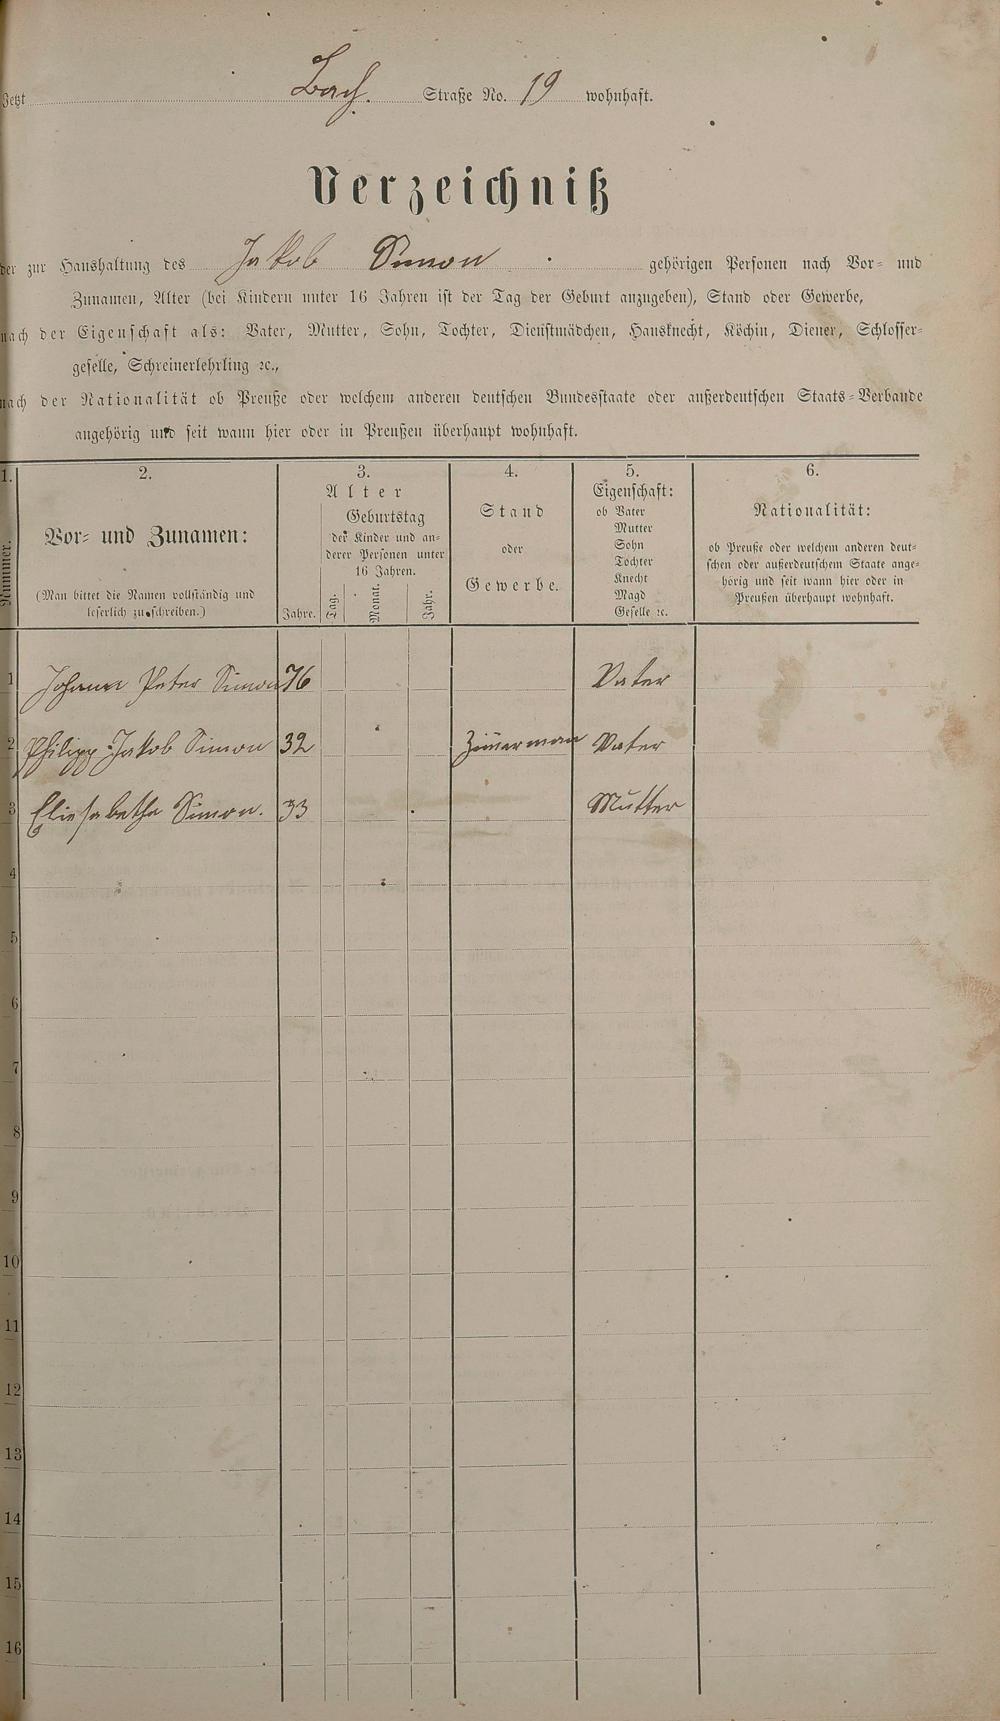 Jetzt Bach. Straße No. 19 wohnhaft.
Verzeichniß
der zur Haushaltung des Jakob Simon gehörigen Personen nach Vor- und
Zunamen, Alter (bei Kindern unter 16 Jahren ist der Tag der Geburt anzugeben), Stand oder Gewerbe,
nach der Eigenschaft als: Vater, Mutter, Sohn, Tochter, Dienstmädchen, Hausknecht, Köchin, Diener, Schlosser-
geselle, Schreinerlehrling ꝛc.,
nach der Nationalität ob Preuße oder welchem anderen deutschen Bundesstaate oder außerdeutschen Staats-Verbande
angehörig und seit wann hier oder in Preußen überhaupt wohnhaft.
1.
Nummer.
2.
Vor- und Zunamen:
(Man bittet die Namen vollständig und
leserlich zu schreiben.)
3.
Alter
Geburtstag
der Kinder und an-
derer Personen unter
16 Jahren.
Jahre. Tag. Monat. Jahr.
4.
Stand
oder
Gewerbe.
5.
Eigenschaft:
ob Vater
Mutter
Sohn
Tochter
Knecht
Magd
Geselle ꝛc.
6.
Nationalität:
ob Preuße oder welchem anderen deut-
schen oder außerdeutschem Staate ange-
hörig und seit wann hier oder in
Preußen überhaupt wohnhaft.
1 Johann Peter Simon 76 Vater
2 Philipp Jakob Simon 32 Zimmerman Vater
3 Eliesabetha Simon. 33 Mutter
4
5
6
7
8
9
10
11
12
13
14
15
16